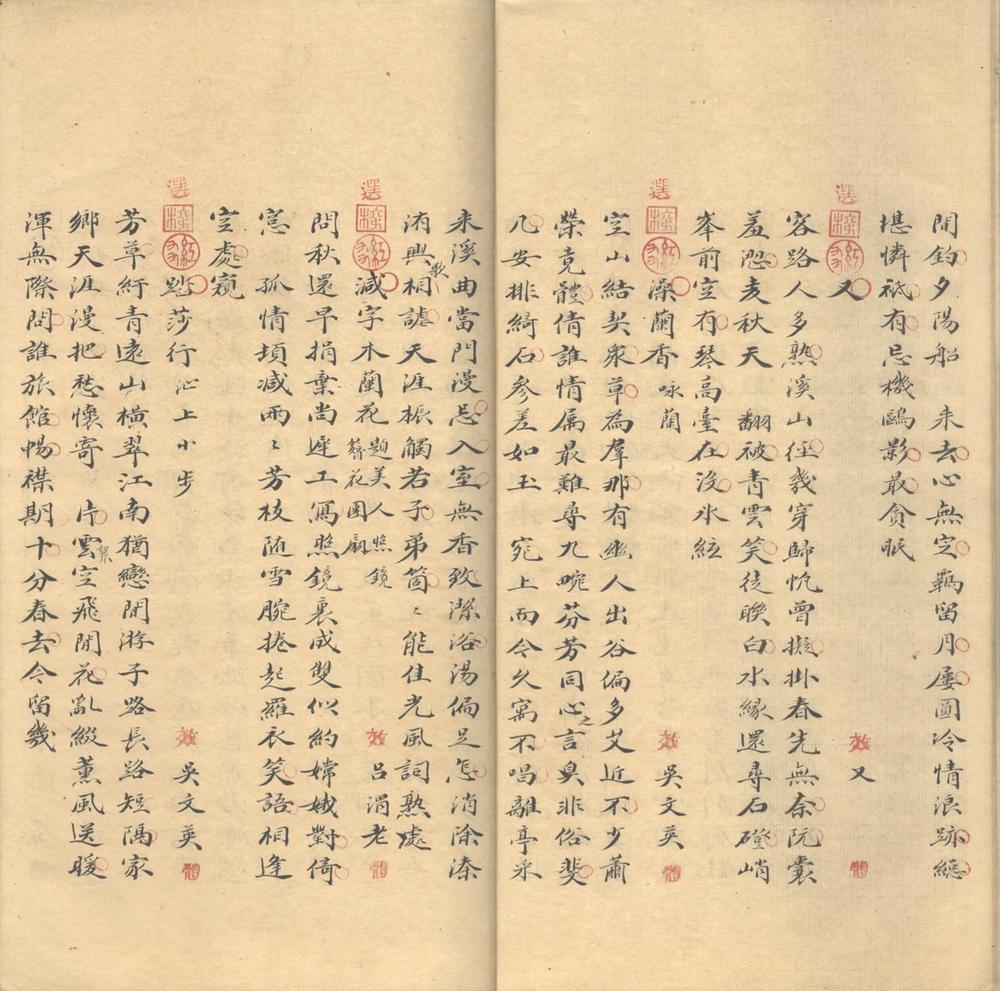 閒釣夕陽船　來去心無定羈留月屢圓冷情浪跡總
堪憐祇有忘機鷗影最貪眠
選
又　效又體
客路人多熟溪山徑幾穿歸帆曾擬掛春先無奈阮囊
羞澀麦秋天　翻被青雲笑徒聯白水緣還尋石磴峭
峯前空有琴高臺在沒水絃
選
深蘭香　詠蘭　效吳文英體
空山結契衆草為羣那有幽人出谷偏多艾近不少蕭
榮竟體倩誰情属最難尋九畹芬芳同心之言臭非俗斐
几安排綺石參差如玉宛上而今久寓不唱離亭采
來溪曲當門漫忘入室無香致潔浴湯偏足怎消除溱
洧興歌相謔天涯振觸若子弟箇〻能佳光風詞熟處
選
減字木蘭花　題美人照鏡簪花圖扇　效呂渭老體
問秋還早捐棄尚遲工寫照鏡裏成雙似約嫦娥對倚
窓　孤情頓减兩〻芳枝随雪腕捲起羅衣笑語相逢
空處窺
選
踏莎行　江上小步　效吳文英體
芳草紆青遠山橫翠江南猶戀閒游子路長路短隔家
鄉天涯漫把愁懷寄　片雲空飛閒花亂綴薰風送暖
渾無際問誰旅館暢襟期十分春去今留幾